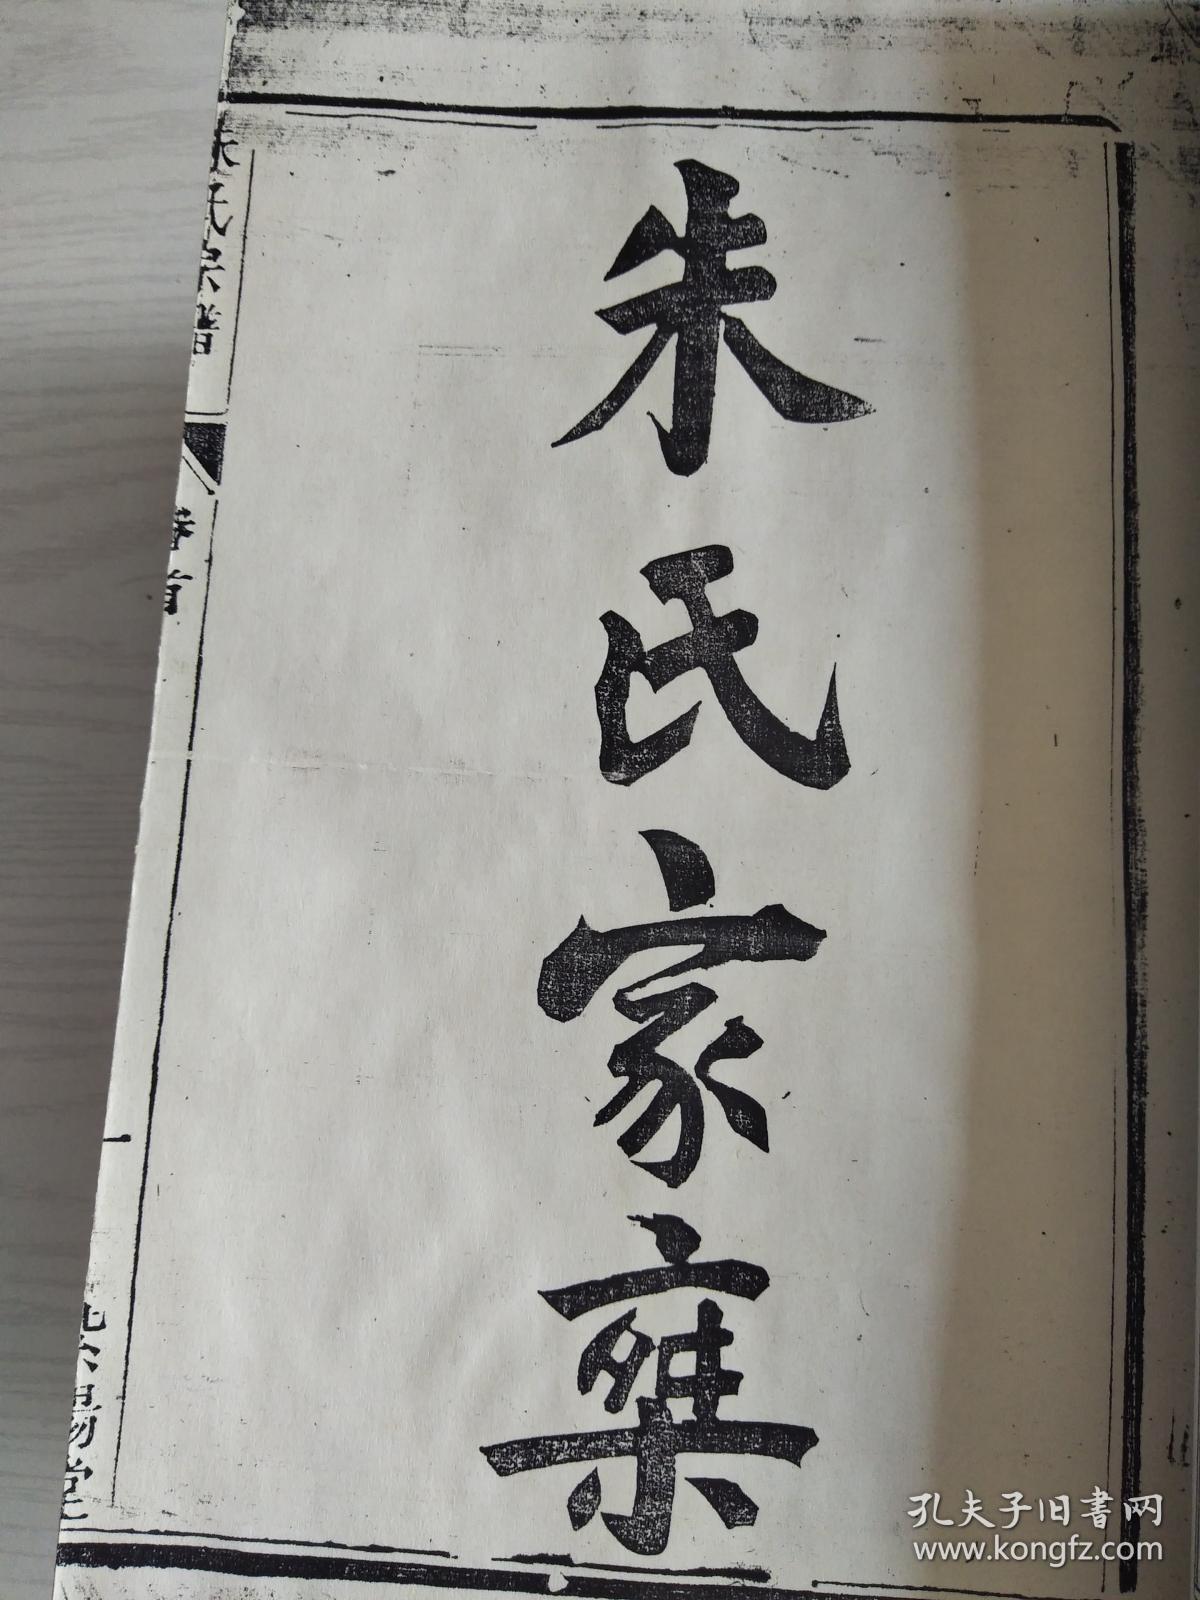 朱氏家乘
朱氏宗谱
卷首
一
孔夫子旧书网
www.kongfz.com